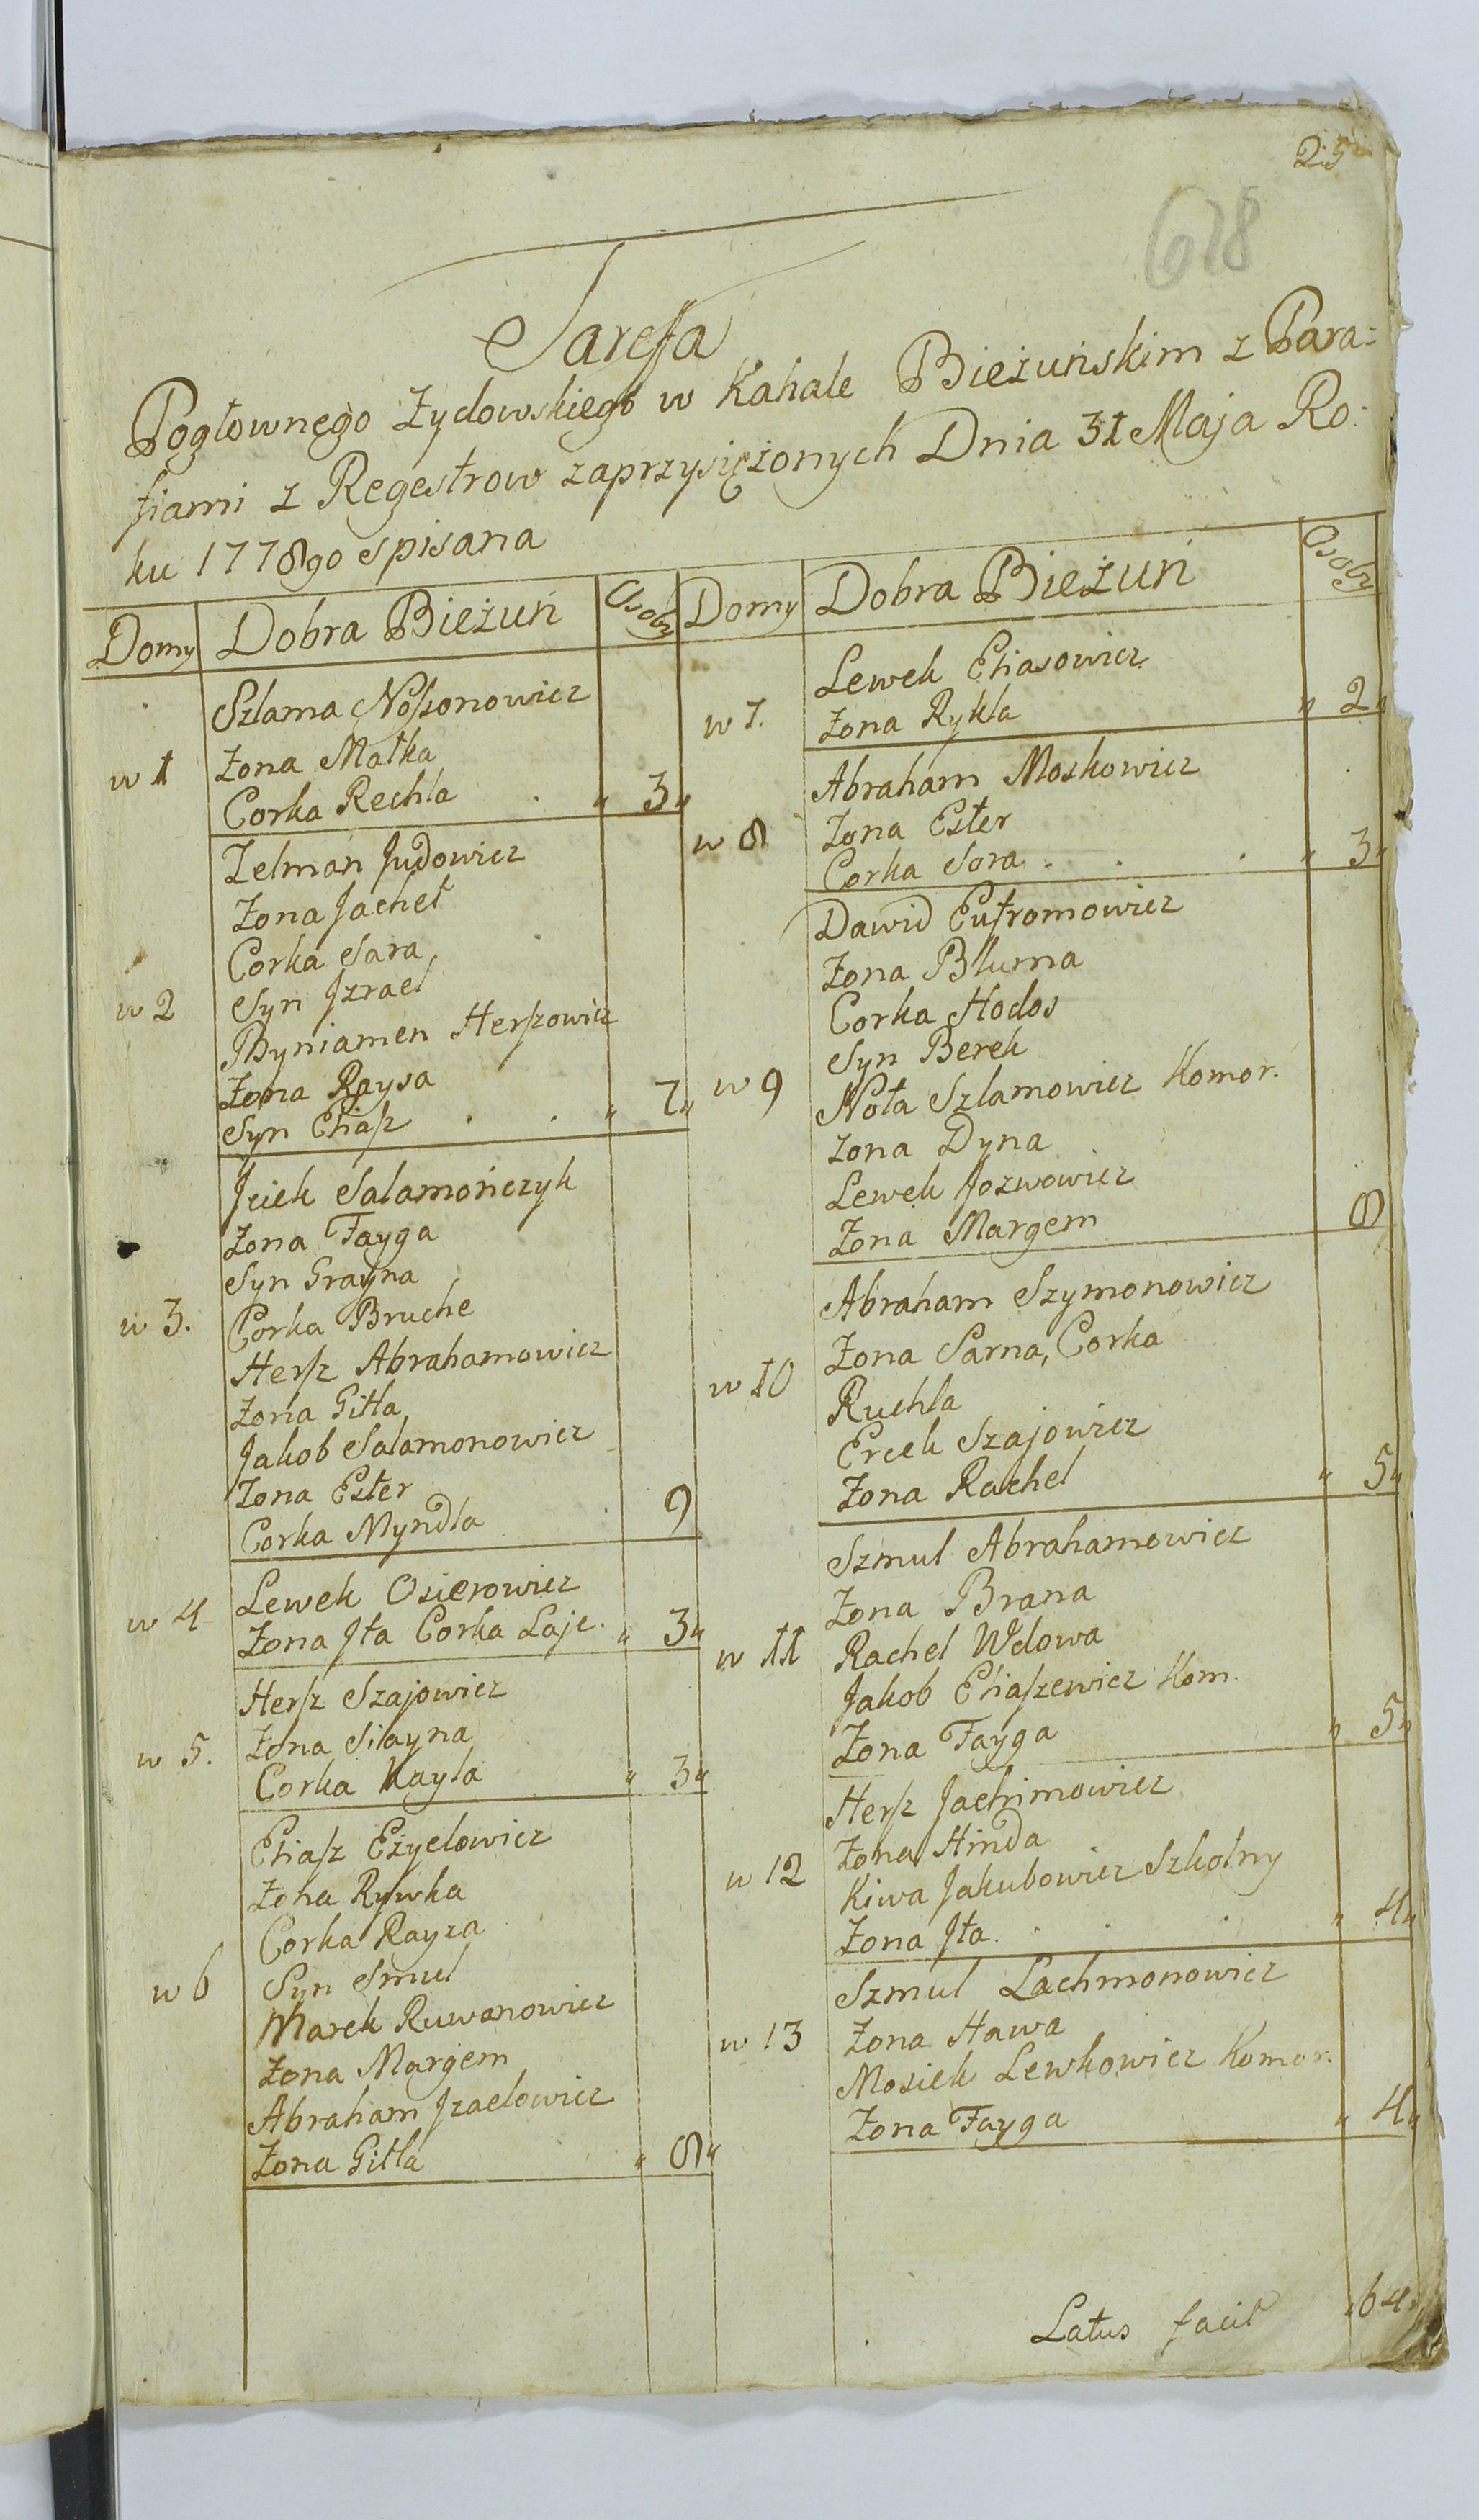 25
618
Tareffa
Pogłownego Żydowskiego w Kahale Bieżuńskim z Para=
fiami z Regestrow zaprzysiężonych Dnia 31 Maja Ro:
ku 1778go spisana
Domy Dobra Bieżuń Osoby
Szlama Nossonowicz
w 1 Żona Małka
Corka Rechla . „ 3„
Zelman Judowicz
Żona Jachet
Corka Sara
w 2 Syn Jzrael
Byniamen Herszowicz
Żona Raysa
Syn Eliasz . . „ 7„
Jciek Salamończyk
Żona Fayga
Syn Grayna
w 3. Corka Bruche
Hersz Abrahamowicz
Żona Gitla
Jakob Salamonowicz
Żona Ester
Corka Myndla 9
Lewek Osierowicz
w 4 Żona Jta Corka Laje. „ 3„
Hersz Szajowicz
w 5. Żona Silayna
Corka Kayla „ 3„
Eliasz Ezyelowicz
Żona Rywka
Corka Rayza
w 6 Syn Smul
Marek Ruwanowicz
Żona Margem
Abraham Jzaelowicz
Żona Gitla „ 8„
Domy Dobra Bieżuń Osoby
Lewek Eliasowicz
w 7. Żona Rykla „ 2„
Abraham Moskowicz
w 8 Żona Ester
Corka Sora . . . „ 3„
Dawid Eufromowicz
Żona Bluma
Corka Hodos
Syn Berek
w 9 Nota Szlamowicz Komor.
Żona Dyna
Lewek Jozwowicz
Żona Margem 8
Abraham Szymonowicz
Żona Sarna, Corka
w 10 Ruchla
Ercek Szajowicz
Żona Rachel „ 5„
Szmul Abrahamowicz
Żona Brana
w 11 Rachel Wdowa
Jakob Eliaszewicz Kom.
Żona Fayga „ 5„
Hersz Jachimowicz
Żona Hinda
w 12 Kiwa Jakubowicz Szkolny
Żona Jta. . . . „ 4„
Szmul Lachmonowicz
w 13 Żona Hawa
Mosiek Lewkowicz Komor.
Żona Fayga „ 4„
Latus facit „64„